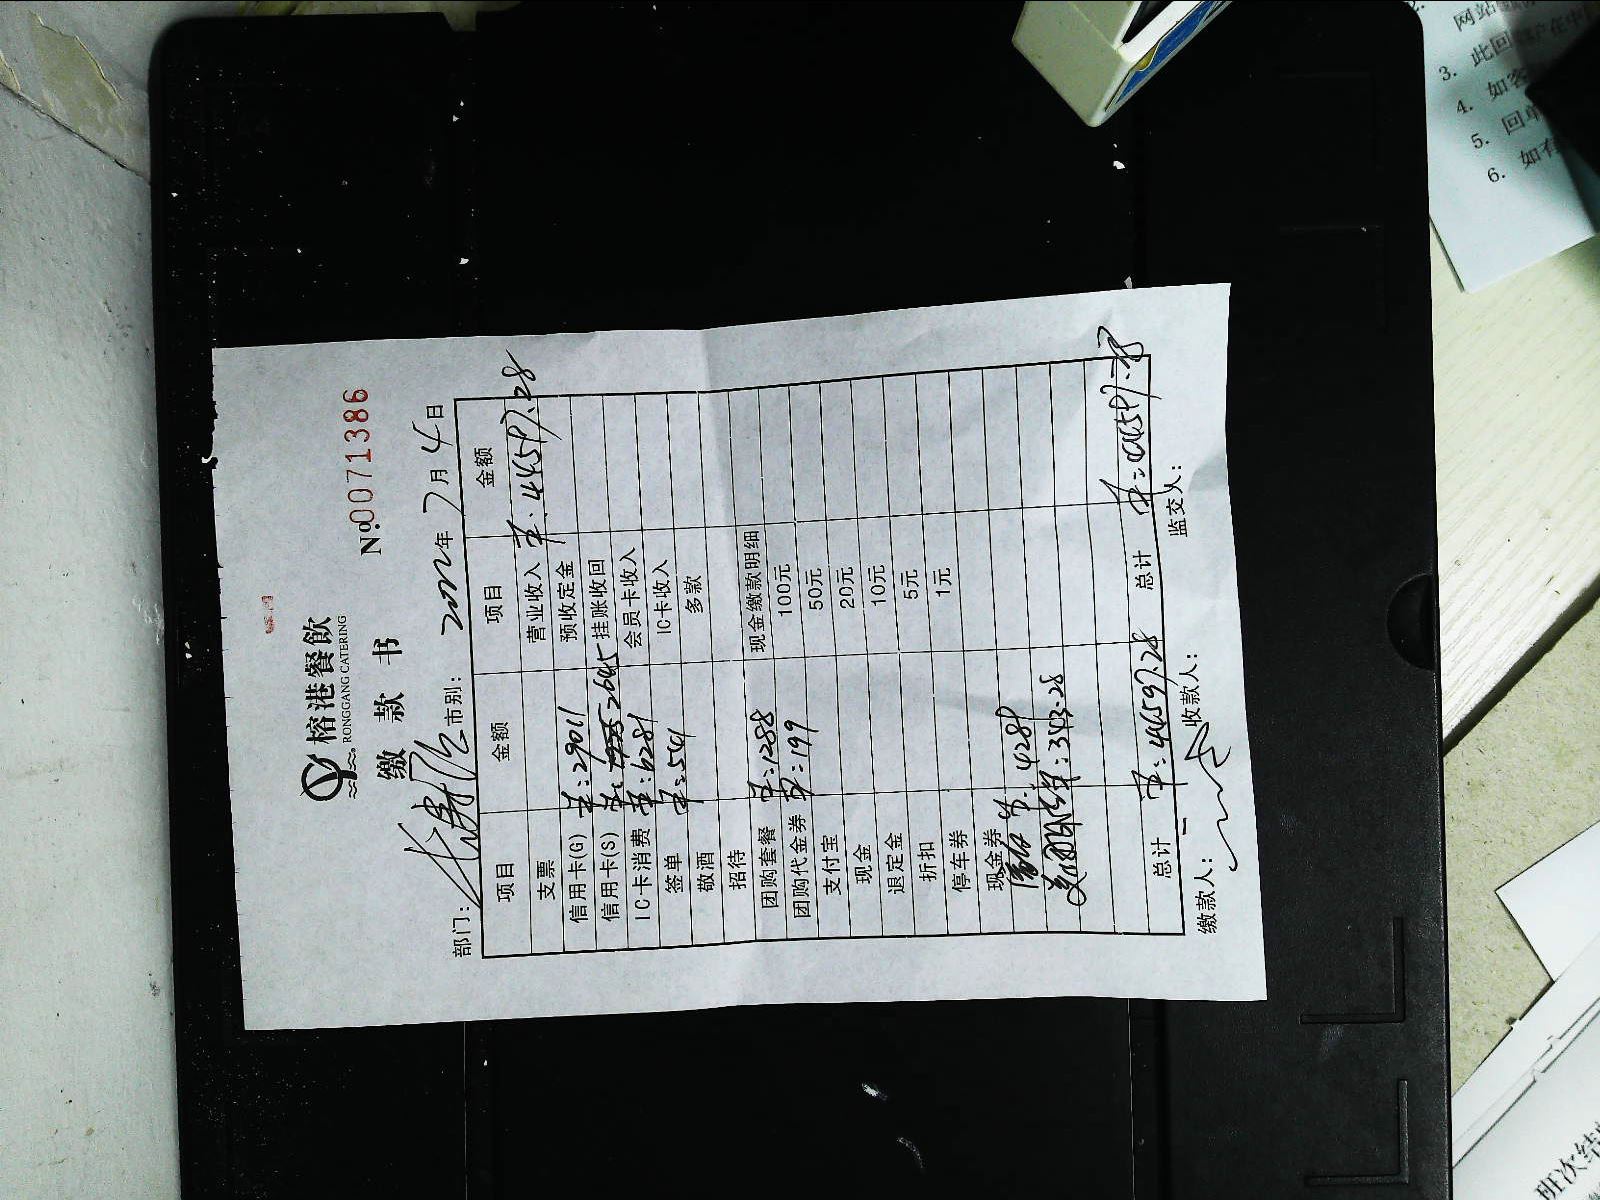 榕港餐飲
RONGGANG CATERING
缴款书
№0071386
部门： 市别： 2022年7月4日
项目 金额 项目 金额
支票 营业收入 ¥:44597.28
信用卡(G) ¥:29011 预收定金
信用卡(S) 2645 挂账收回
IC卡消费 ¥:6281 会员卡收入
签单 ¥:541 IC卡收入
敬酒 多款
招待
团购套餐 ¥:1288 现金缴款明细
团购代金券 ¥:199 100元
支付宝 50元
现金 20元
退定金 10元
折扣 5元
停车券 1元
现金券
4289
343.28
总计 ¥:44597.28 总计 ¥:44597.28
缴款人： 收款人： 监交人：
3. 此回
4. 如客
5. 回单
6. 如有
班次结